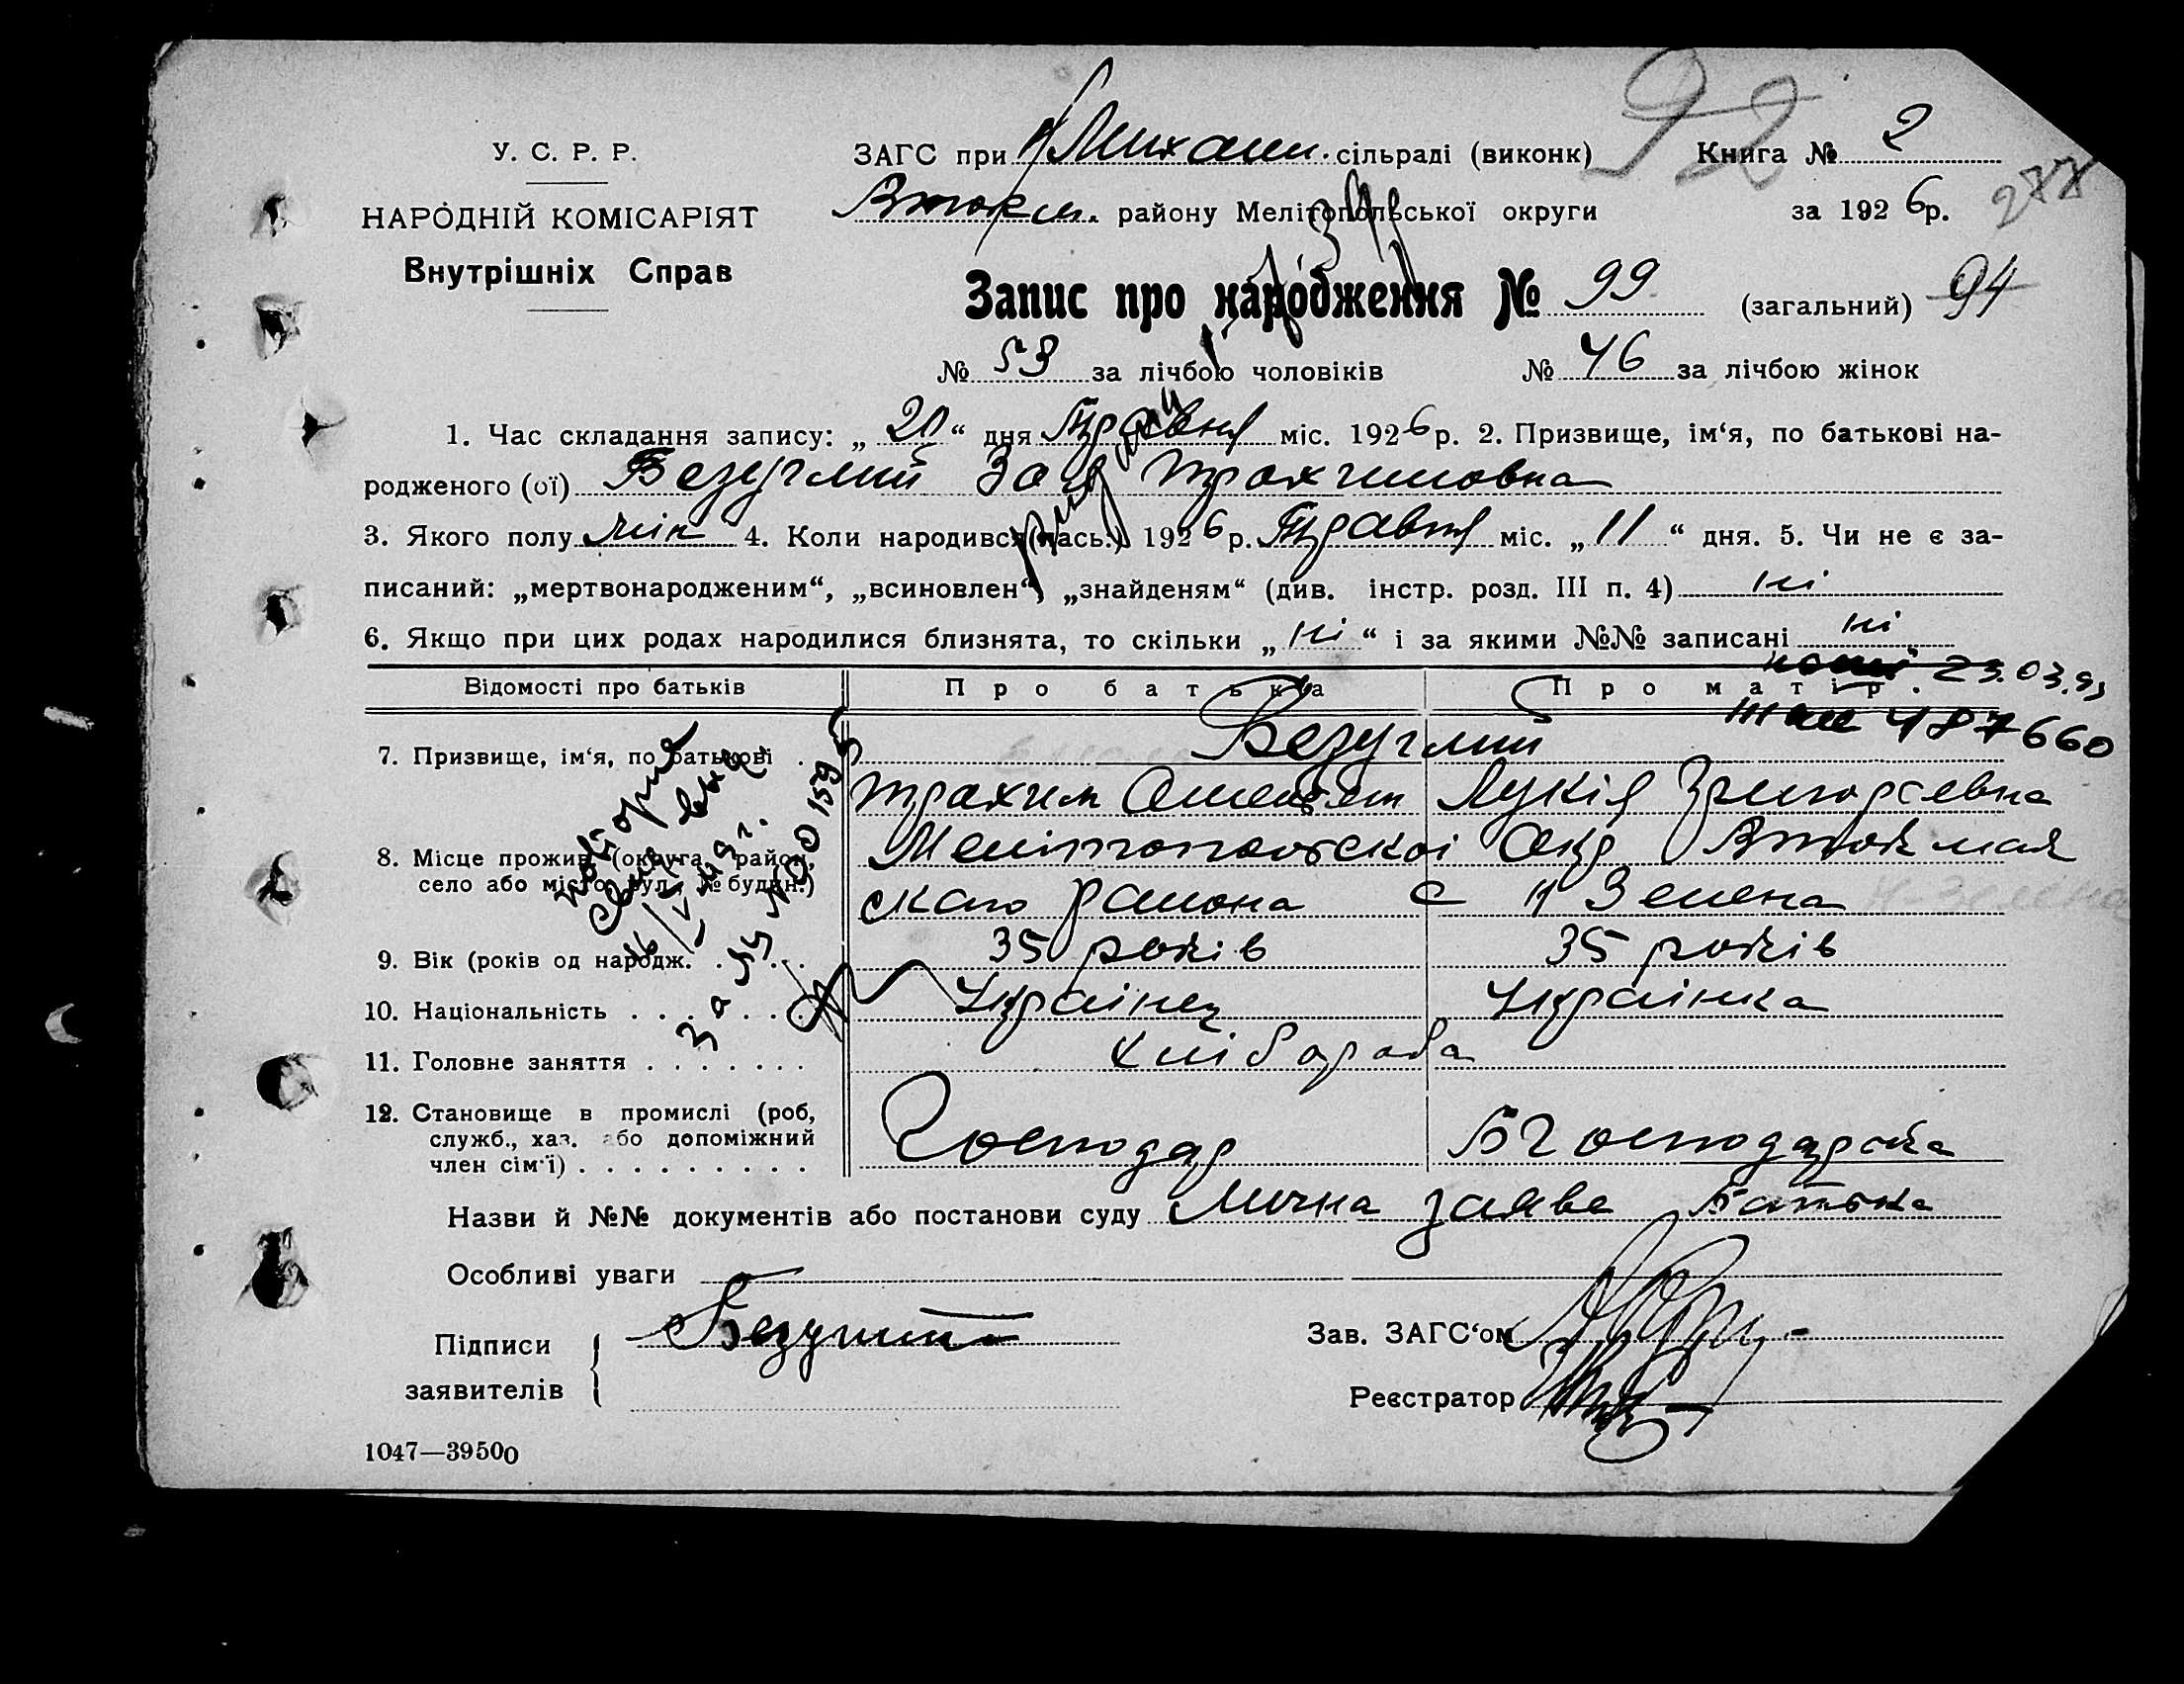 У. С. Р. Р.
НАРОДНІЙ КОМІСАРІЯТ
Внутрішніх Справ
ЗАГС при Н Михайл. сільраді (виконк)
92
Книга № 2
Втокм. району Мелітопольської округи
за 1926р.
Запис про народження № 99 (загальний) 94
№ 53 за лічбою чоловіків № 46 за лічбою жінок
1. Час складання запису: „ 20 “ дня Травня міс. 1926р. 2. Призвище, ім‘я, по батькові на-
родженого (ої) Безуглий Зоя Трохимовна
3. Якого полу жін 4. Коли народився(лась.) 1926р. Травня міс. „ 11 “ дня. 5. Чи не є за-
писаний: „мертвонародженим“, „всиновлен“, „знайденям“ (див. інстр. розд. III п. 4) ні
6. Якщо при цих родах народилися близнята, то скільки „ ні “ і за якими №№ записані ні
23.03.93
487660
Відомості про батьків Про батька Про матір.
7. Призвище, ім‘я, по батькові . Безуглий
Трохим Лукія Григорєвна
8. Місце прожив. (округа, район, село або місто, вул., № будин.)
Мелітопольскої Окр Втокмак
ского района с Н Зелена
9. Вік (років од народж. . . . . 35 років 35 років
10. Національність . . . . . . . Українец Українка
11. Головне заняття . . . . . . . Хлібороба
12. Становище в промислі (роб, служб., хаз. або допоміжний член сім‘ї) . . . . . . . . .
Господар Господарка
повторне
за № 001595
Назви й №№ документів або постанови суду Лична заява Батька
Особливі уваги
Підписи заявителів Безуглий
Зав. ЗАГС‘ом
Реєстратор
1047—39500